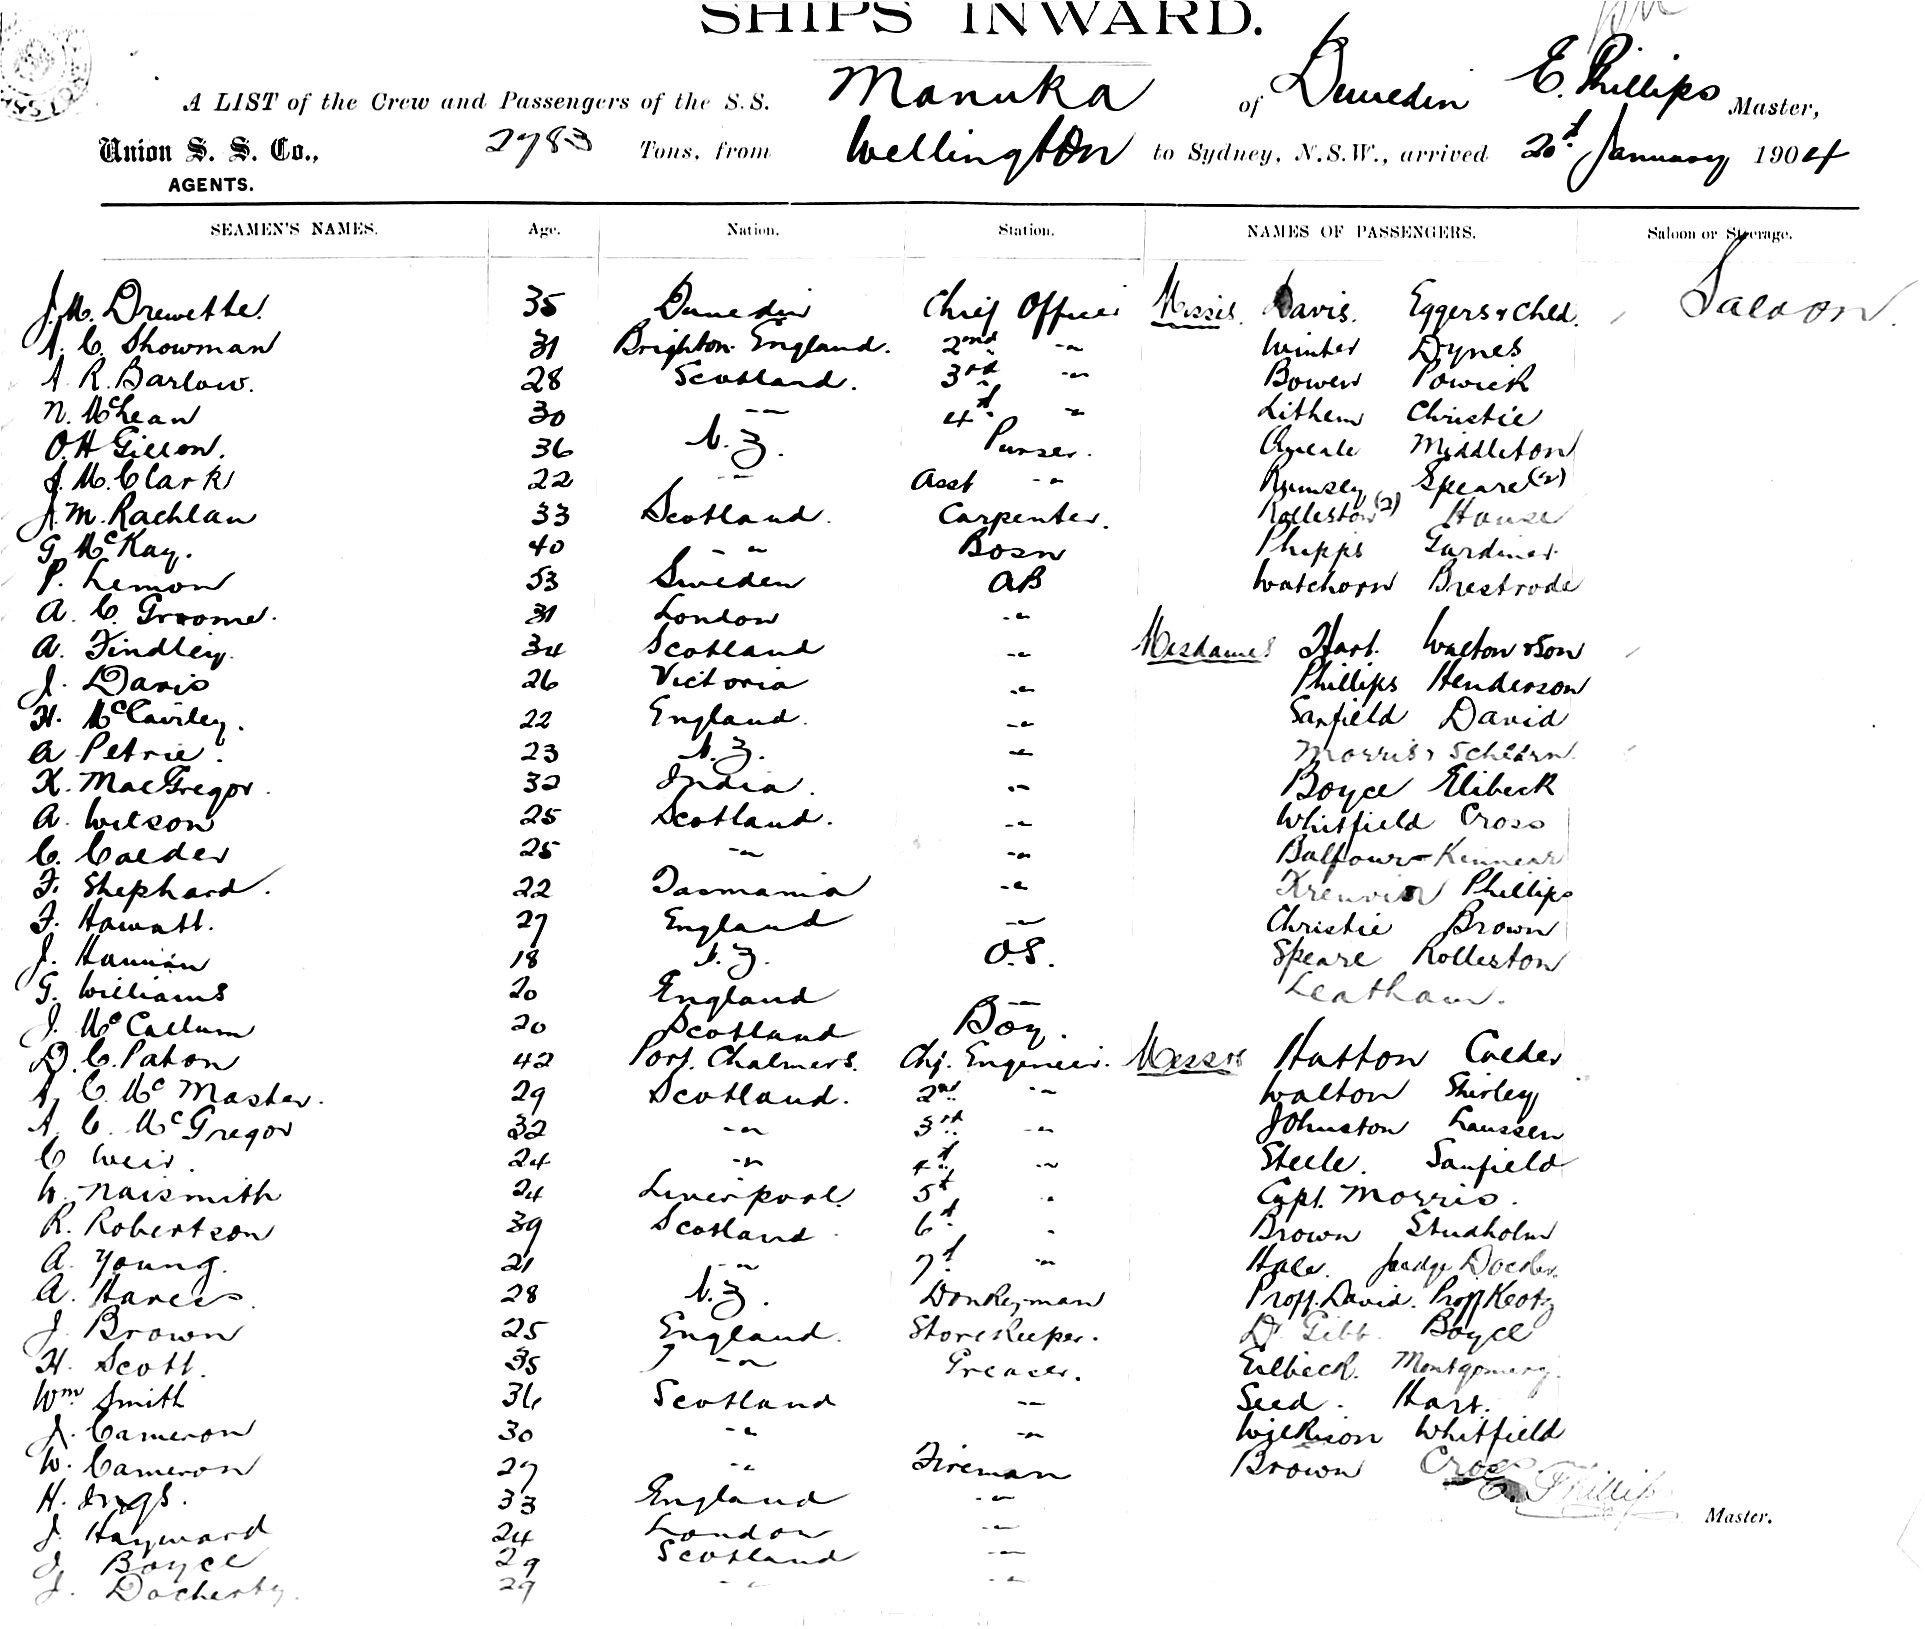 SHIPS INWARD.
A LIST of the Crew and Passengers of the S.S. Manuka of Dunedin E. Phillips Master,
Union S. S. Co., 2783 Tons, from Wellington to Sydney, N.S.W., arrived 20th January 1904
AGENTS.
SEAMEN'S NAMES. Age. Nation. Station. NAMES OF PASSENGERS. Saloon or Steerage.
J. M. Drewette. 35 Dunedin Chief Officer Messrs. Davis. Eggers & Chld. Saloon.
A. C. Showman 31 Brighton England. 2nd " Winter Dynes
A. R. Barlow. 28 Scotland. 3rd " Bowen Powick
N. McLean 30 " 4th " Lithem Christie
O. H Gillon. 36 N. Z. Purser. Middleton
J. M. Clark 22 " Asst " Rumsey Speare (2)
J. M. Rachlan 33 Scotland. Carpenter. Rolleston (2) House
G. McKay. 40 " Bosn Phipps Gardiner.
P. Lemon 53 Sweden AB Watchorn Brestrode
A. C. Groome. 31 London "
A. Findley. 34 Scotland " Mesdames Hart. Walton & Son
J. Davis 26 Victoria " Phillips Henderson
H. 22 England. " Sanfield David
A Petrie. 23 N. Z. " Morris &
K. MacGregor. 32 India. " Boyce Elibeck
A. Wilson 25 Scotland. " Whitfield Cross
C. Calder 25 " " Balfour Kinnear
F. Shephard. 22 Tasmania " Phillips
F. Howatt. 27 England " Christie Brown
J. Hannan 18 N. Z. O.S. Speare Rolleston
G. Williams 20 England " Leatham.
J. McCallum 20 Scotland Boy.
D. C. Paton 42 Port Chalmers. Chf. Engineer. Messrs Hatton Calder
A. C. McMaster. 29 Scotland. 2nd " Walton Shirley
A. C. McGregor 32 " 3rd " Johnston Laussen
C Weir. 24 " 4th " Steele. Sanfield
W. Naismith 24 Liverpool. 5th " Capt. Morris.
R. Robertson 39 Scotland 6th " Brown Studholm
A. Young. 21 " 7th " Hale. Judge Docker.
A. Harris. 28 N. Z. Donkeyman Proff. David. Proff
J. Brown 25 England. Storekeeper. Dr Gibb. Boyce
H. Scott. 35 " Greaser. Eilbeck. Montgomery.
Wm. Smith 36 Scotland " Seed. Hart.
J. Cameron 30 " " Wilkison Whitfield
W. Cameron 27 " Fireman Brown Cross
H. Ings. 33 England " E. Phillips Master.
J. Hayward 24 London "
J. Boyce 29 Scotland "
J. Docherty. 29 " "